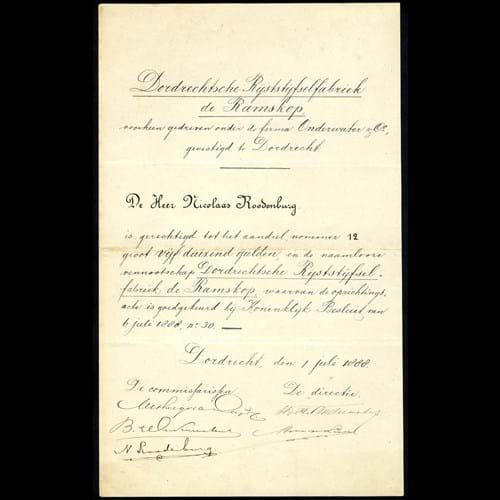 Dordrechtsche Rijststijfselfabriek
de Ramskop,
voorheen gedreven onder de firma Onderwater & Co,
gevestigd te Dordrecht
De Heer Nicolaas Roodenburg
is gerechtigd tot het aandeel nommer 12
groot vijf duizend gulden en de naamlooze
vennootschap Dordrechtsche Rijststijfsel-
fabriek de Ramskop, waarvan de oprichtings-
acte is goedgekeurd bij Koninklijk Besluit van
6 juli 1888, no 30.
Dordrecht, den 1 juli 1888.
De commissarissen
De directie.
N. Roodenburg.